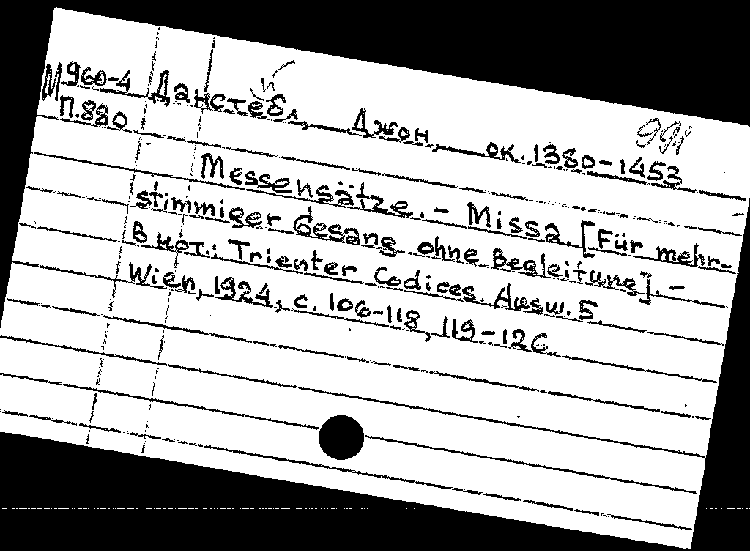 М960-4 Данстебл, Джон, ок. 1380-1453 991
П.880
Messensätze. - Missa. [Für mehr-
stimmiger Gesang ohne Begleitung]. -
В нот.: Trienter Codices. Ausw. 5.
Wien, 1924, с. 106-118, 119-120